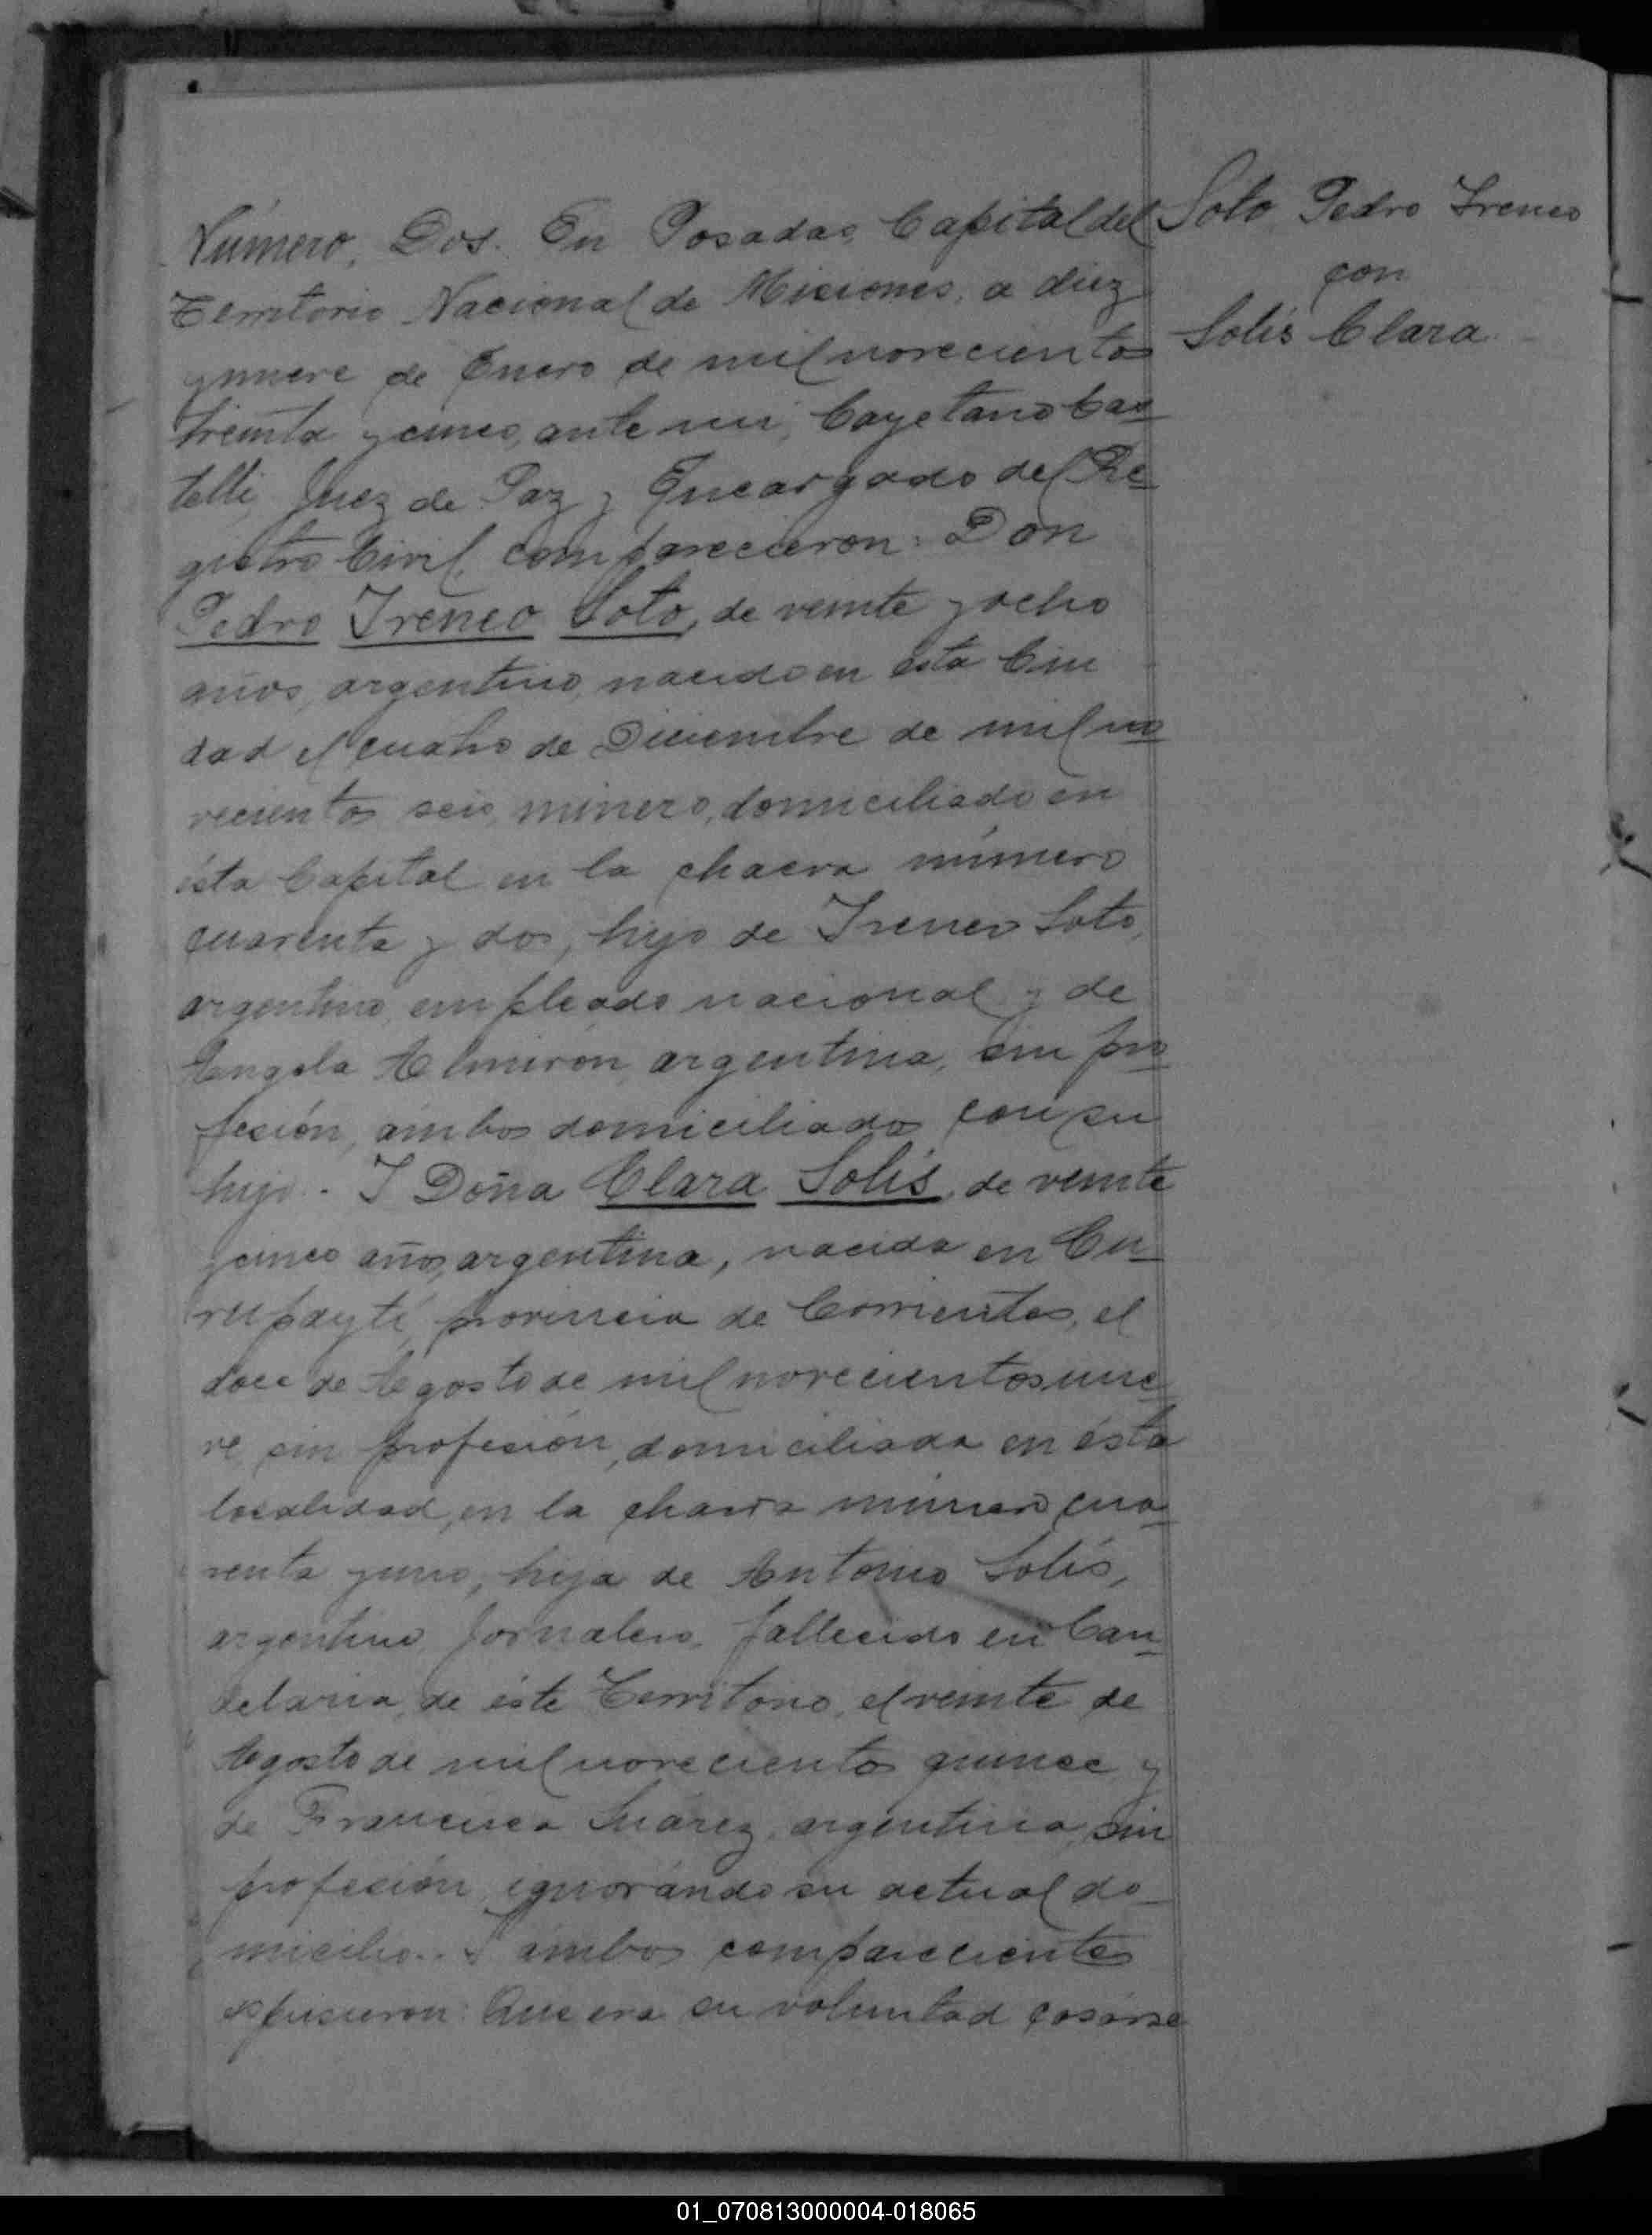 Número, Dos. En Posadas, Capital del
Territorio Nacional de Misiones, a diez
y nueve de Enero de mil novecientos
treinta y cinco, ante mi, Cayetano Cas
telli, Juez de Paz y Encargado del Re
gistro Civil, comparecieron: Don
Pedro Ireneo Soto, de veinte y ocho
años, argentino, nacido en ésta Ciu
dad el cuatro de Diciembre de mil no
vecientos seis, minero, domiciliado en
ésta Capital en la chacra número
cuarenta y dos, hijo de Ireneo Soto,
argentino, empleado nacional y de
Angela Almirón, argentina, sin pro
fesión, ámbos domiciliados con su
hijo.- Y Doña Clara Solís, de veinte
y cinco años, argentina, nacida en Cu
rupaytí, provincia de Corrientes, el
doce de Agosto de mil novecientos nue
ve, sin profesión, domiciliada en ésta
localidad, en la chacra número cua
renta y uno, hija de Antonio Solís,
argentino, jornalero, fallecido en Can
delaria, de éste Territorio, el veinte de
Agosto de mil novecientos quince y
de Francisca Suárez, argentina, sin
profesión, ignorándo su actual do
micilio.. Y ámbos comparecientes
expusieron: Que era su voluntad casarse
Soto Pedro Ireneo
con
Solís Clara
01_070813000004-018065